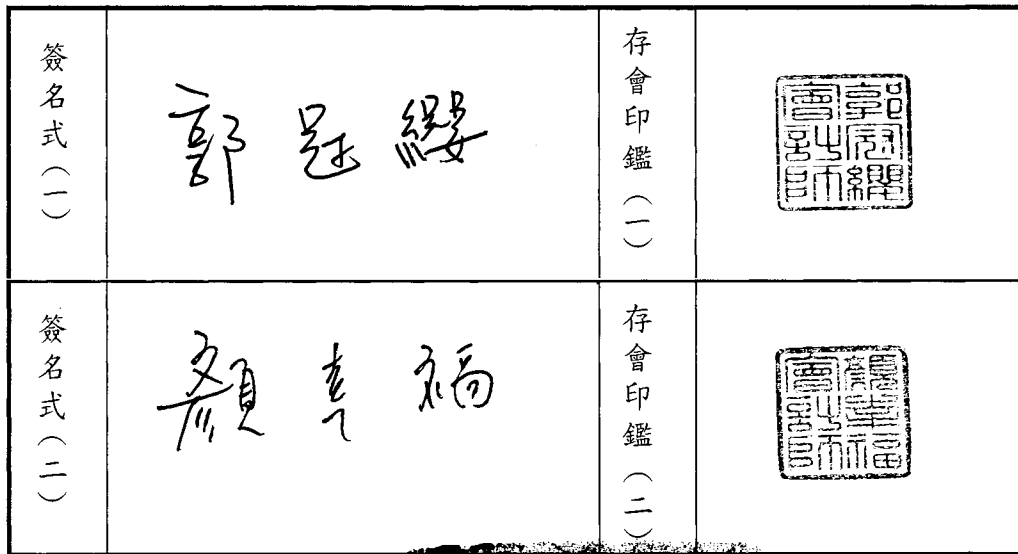 簽名式(一)
郭冠纓
存會印鑑(一)
郭冠纓
會計師
簽名式(二)
顏幸福
存會印鑑(二)
顏幸福
會計師